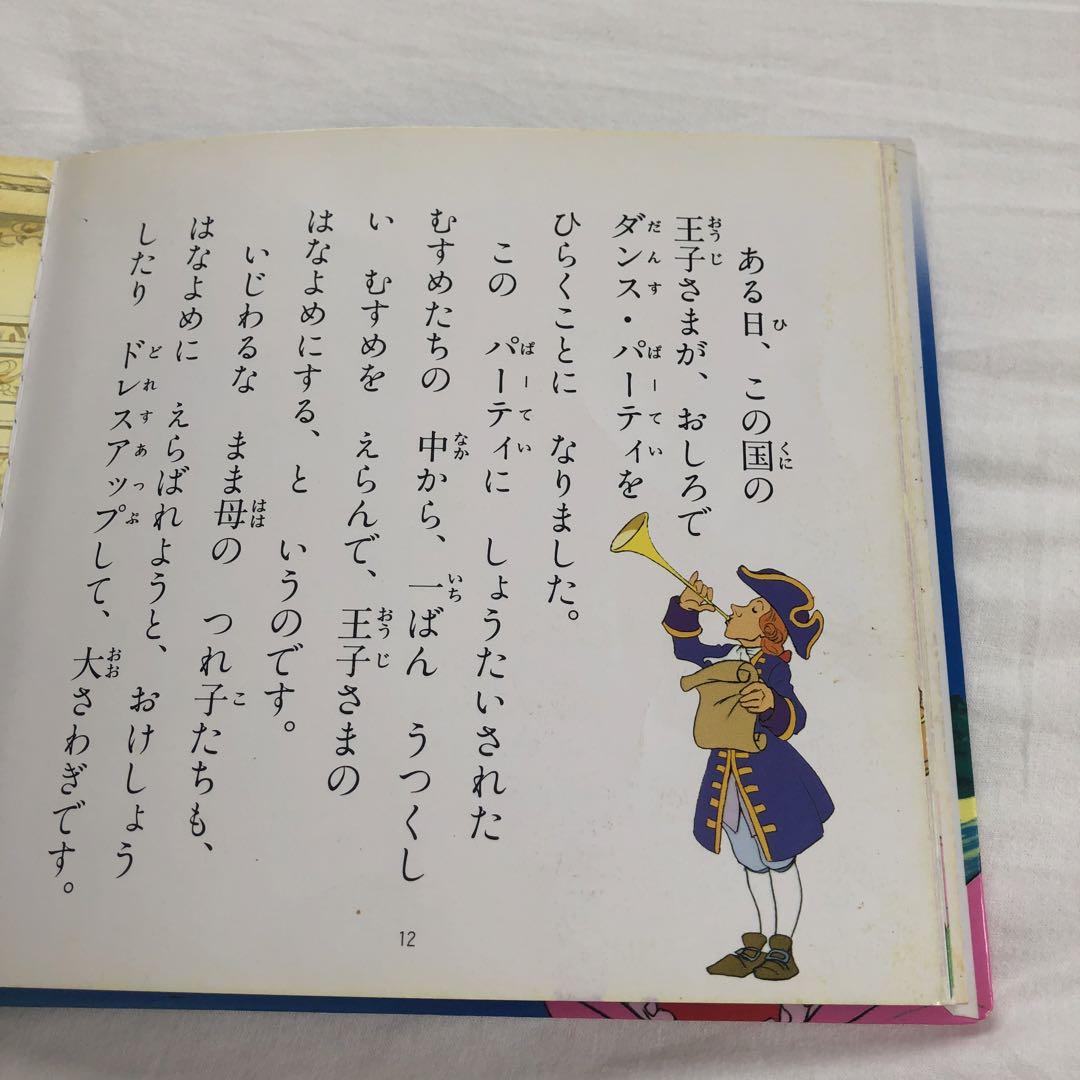 ある日、この国の
王子さまが、おしろで
ダンス・パーティを
ひらくことに なりました。
この パーティに しょうたいされた
むすめたちの 中から、一ばん うつくし
い むすめを えらんで、王子さまの
はなよめにする、と いうのです。
いじわるな まま母の つれ子たちも、
はなよめに えらばれようと、おけしょう
したり ドレスアップして、大さわぎです。
12